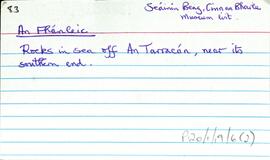 83
Seáinín Beag, Cinn an Bhaile
Museum list.
An Fháinleic
Rocks in sea off An Tarracán, near its
southern end.
P120/1/9/6(2)